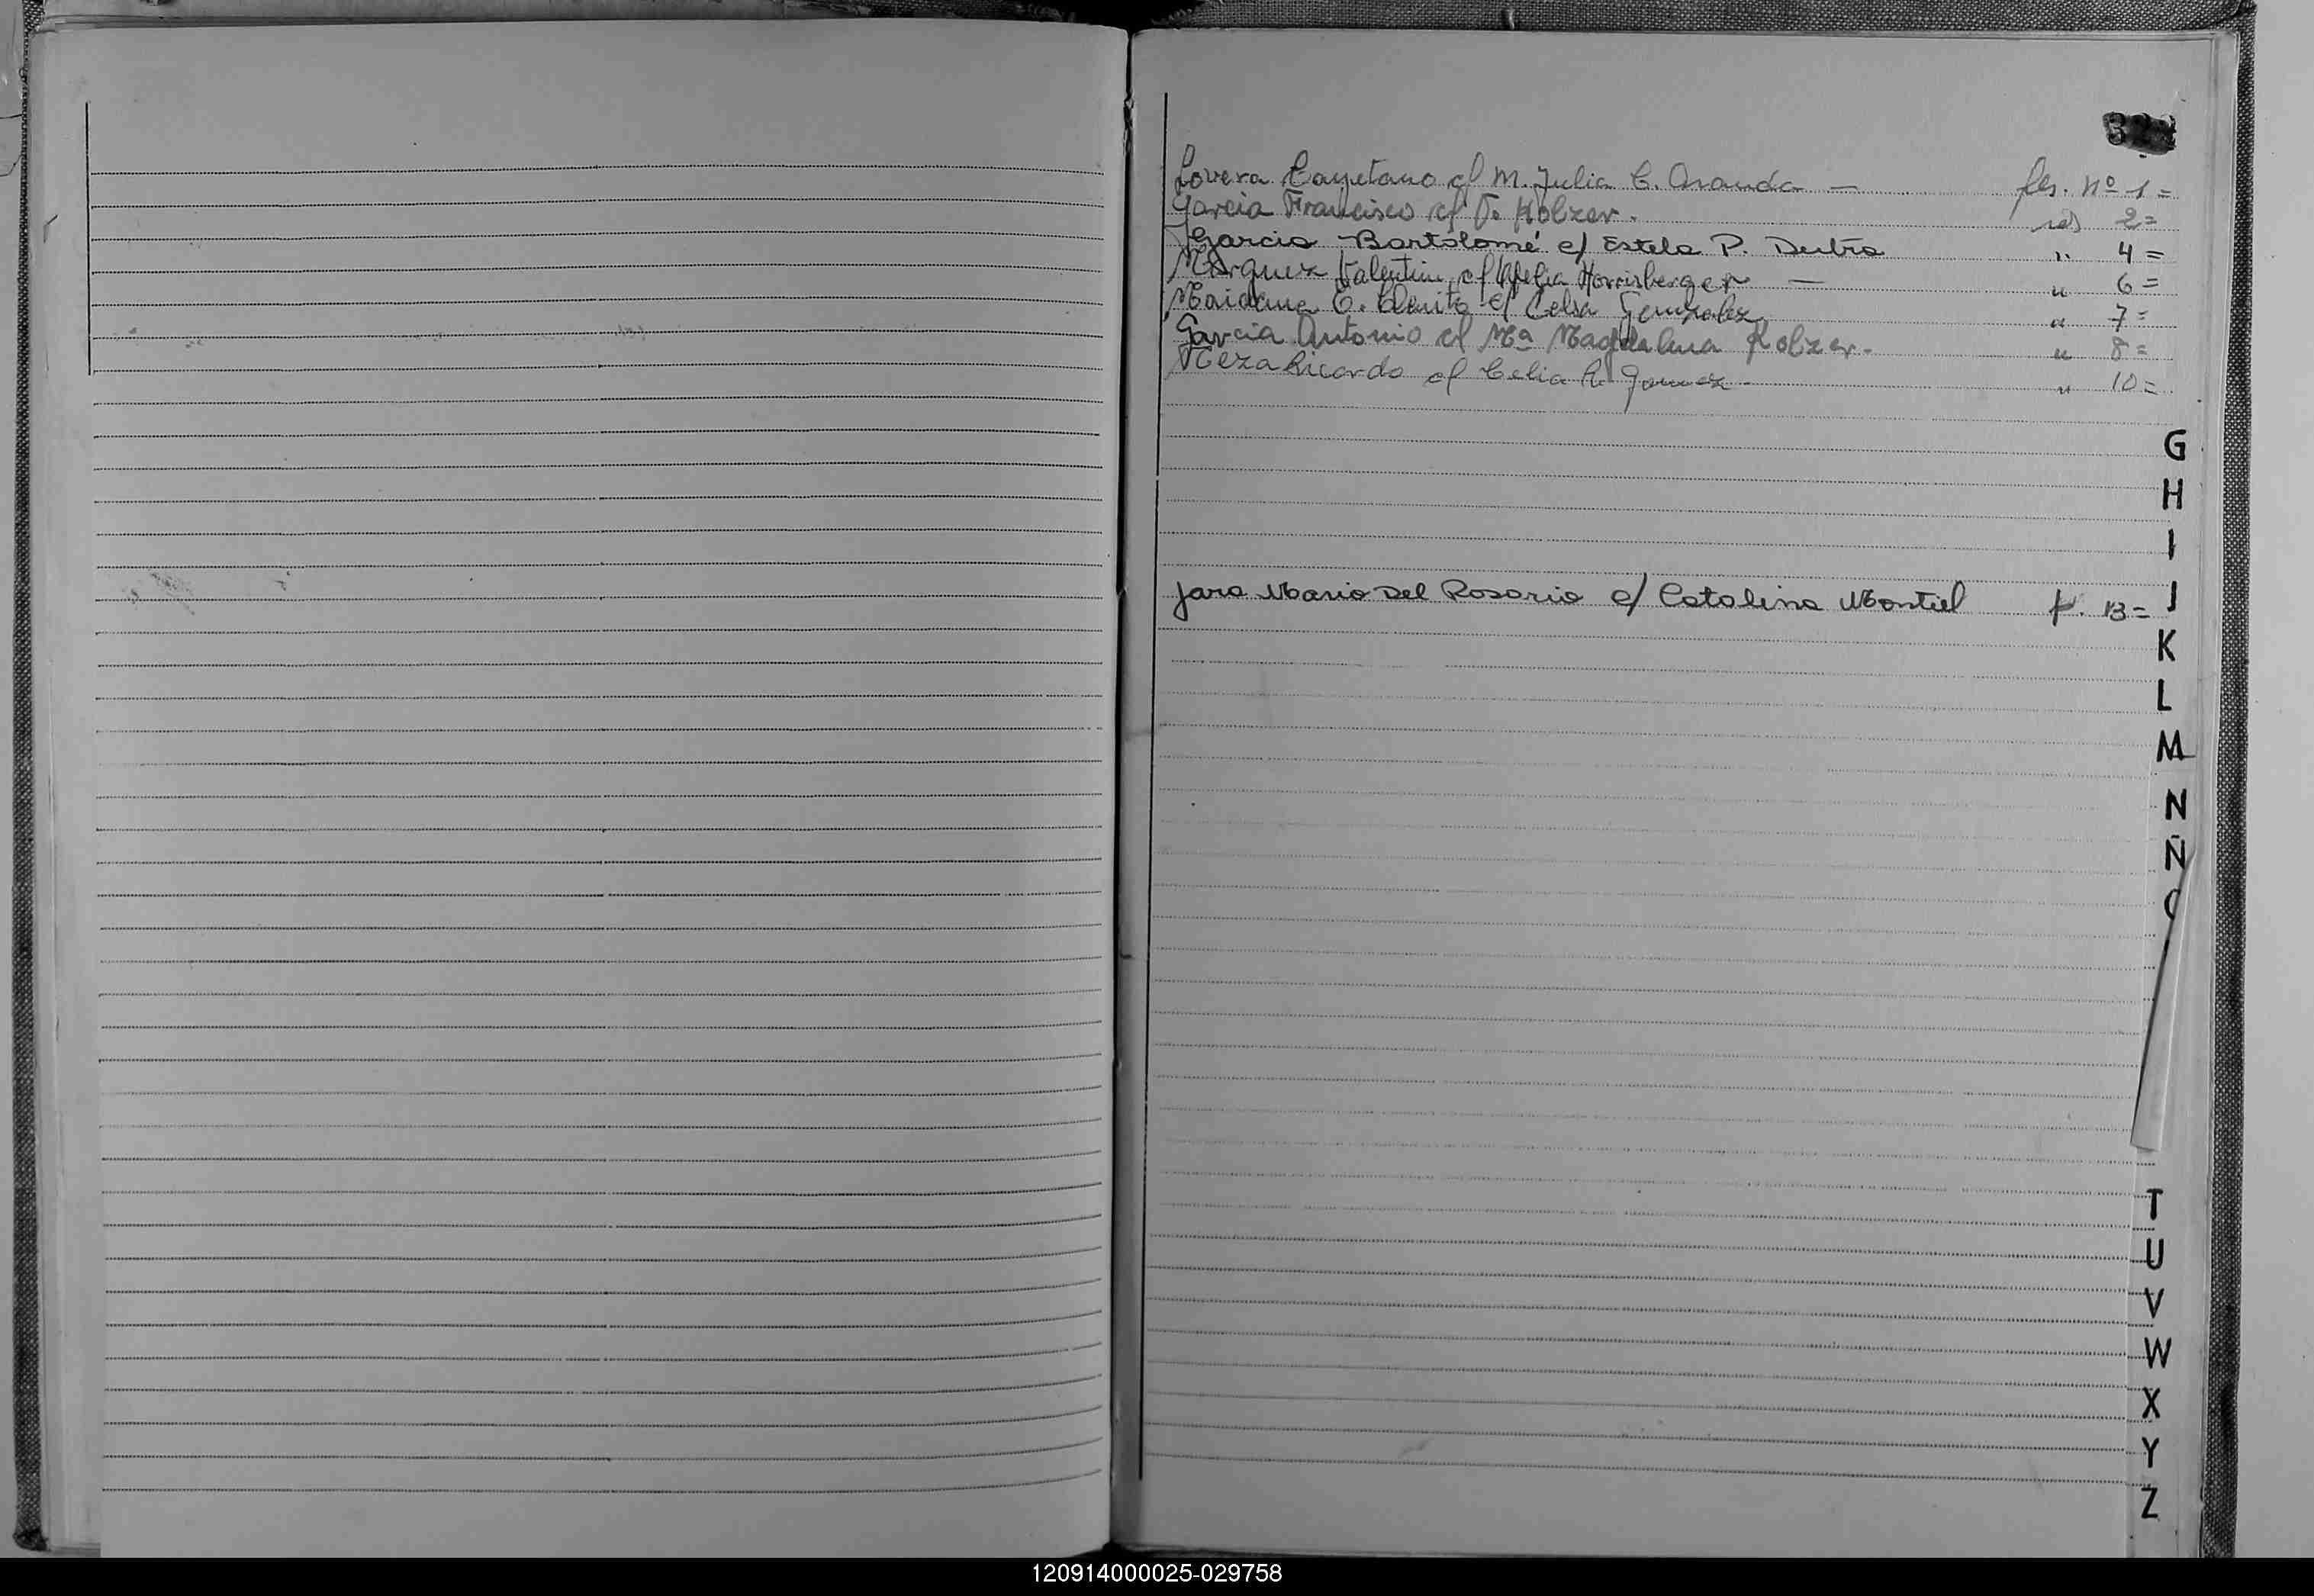 Lovera Cayetano c/ M. Julia C. Aranda — fls. nº 1=
Garcia Francisco c/ F. Holzer. id 2=
Garcia Bartolomé c/ Estela P. Dutra " 4=
Marquez Valentin c/ Horrisberger — " 6=
Maidana C. Benito c/ Celsa Gonzalez " 7=
Garcia Antonio c/ Mª Magdalena Holzer. " 8=
Meza Ricardo c/ Celia R. Gomez - " 10=
G
H
I
Jara Mario Del Rosario c/ Catalina Montiel f. 13= J
K
L
M
N
Ñ
T
U
V
W
X
Y
Z
120914000025-029758